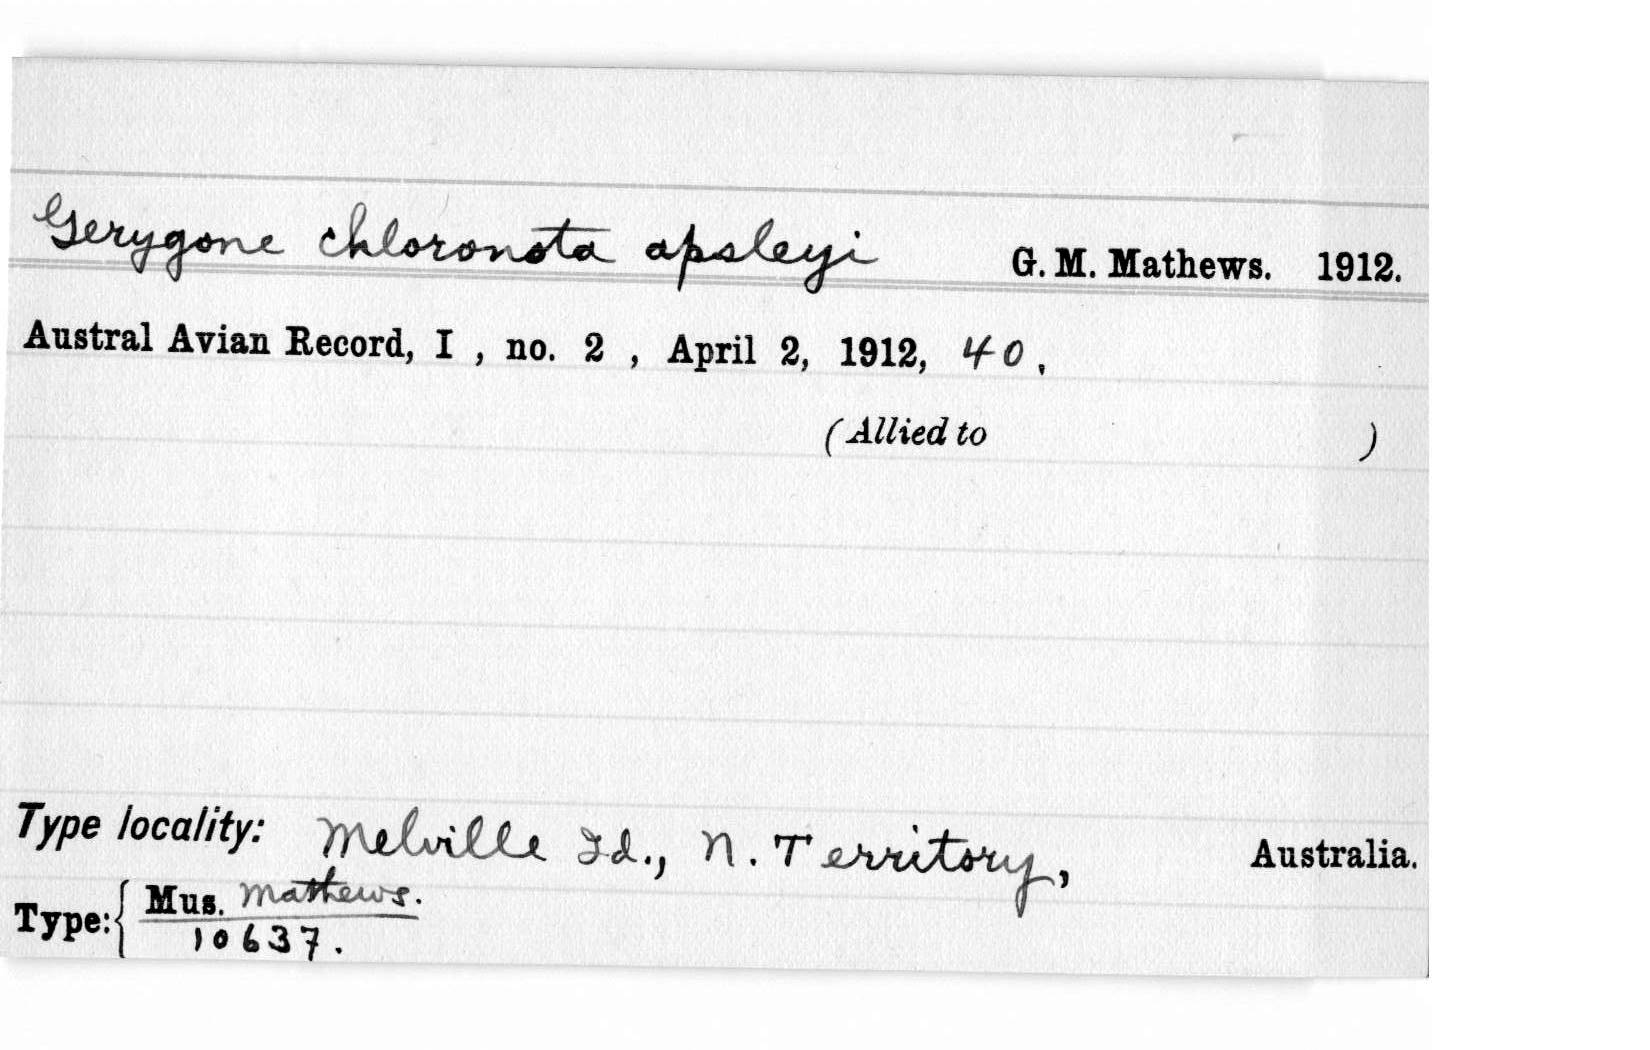 Gerygone chloronota apsleyi G. M. Mathews. 1912.
Austral Avian Record, I , no. 2 , April 2, 1912, 40.
(Allied to )
Type locality: Melville Id., N. Territory, Australia.
Type: { Mus. Mathews.
10637.